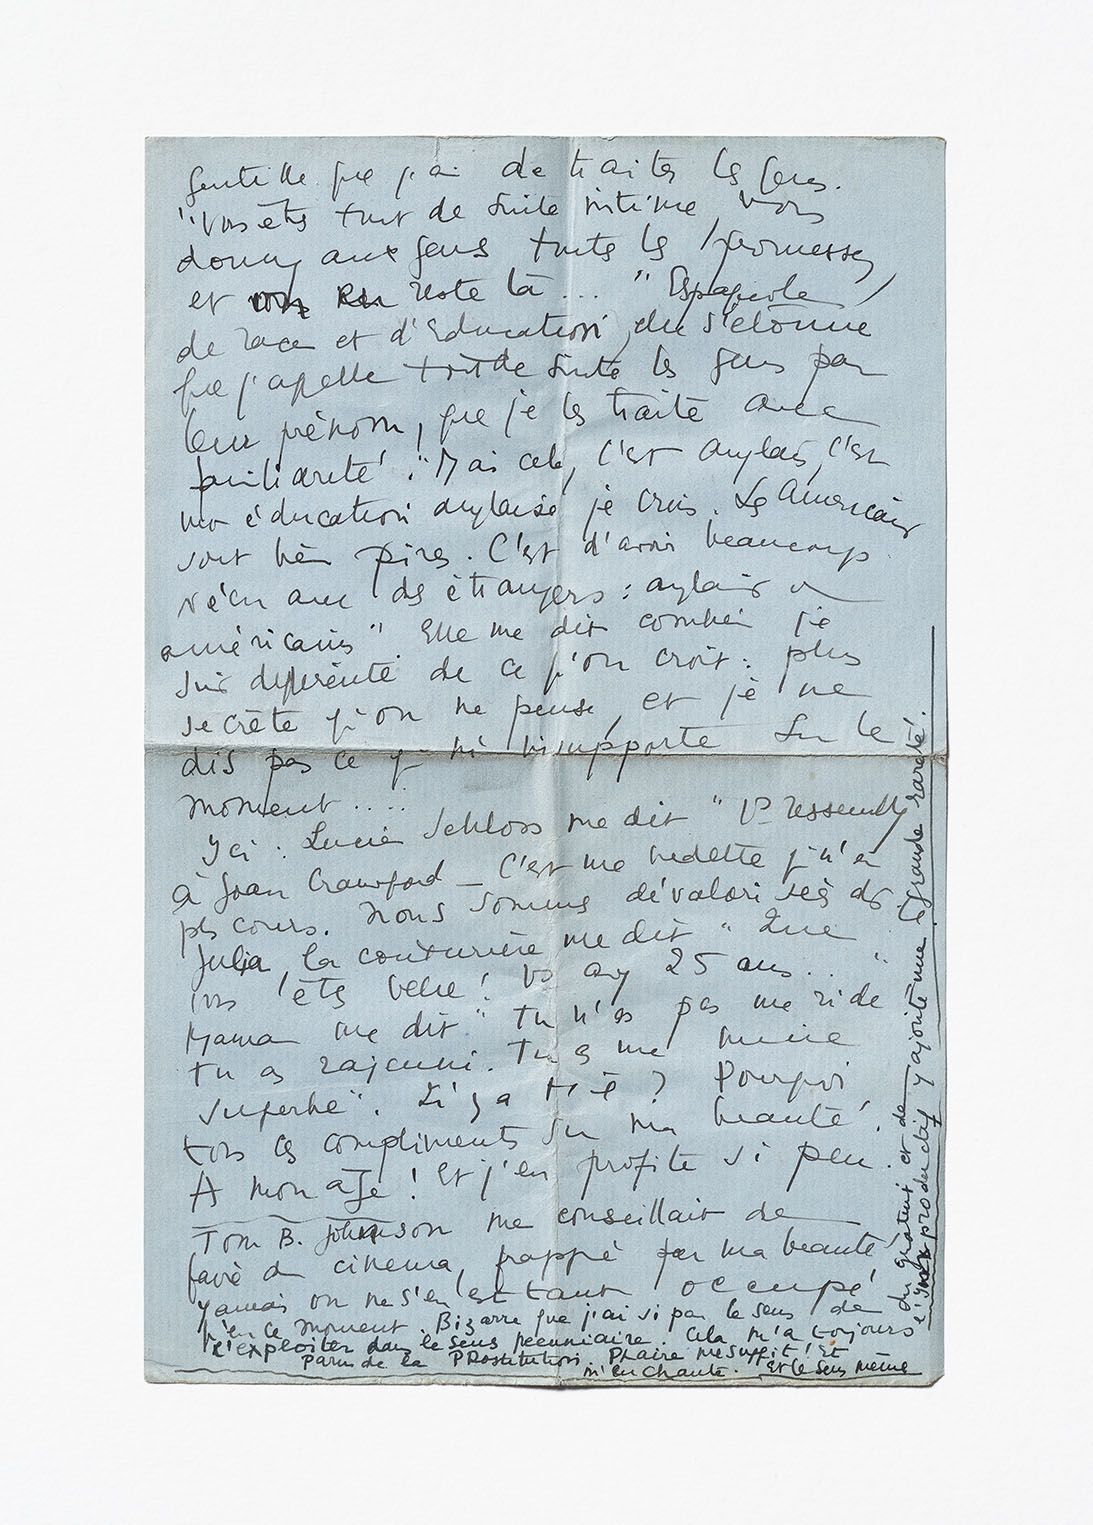 gentille que j'ai de traiter les gens.
"Vous êtes tout de suite intime, vous
donnez aux gens toutes les promesses,
et on en reste là... " Espagnole
de race et d'éducation, elle s'étonne
que j'apelle tout de suite les gens par
leur prénom, que je les traite avec
familiarité. "Mais cela, c'est anglais, c'est
mon éducation anglaise je crois. Les Américains
sont bien pires. C'est d'avoir beaucoup
vécu avec des étrangers : anglais ou
américains". Elle me dit combien je
suis différente de ce qu'on croit : plus
secrète qu'on ne pense, et je ne
dis pas ce qui m'insupporte sur le
moment.....
Ici : Lucien Schloss me dit "Vs ressemblez
à Joan Crawford _ C'est une vedette qui n'a
plus cours. Nous sommes dévalorisées
Julia, la couturière me dit "Que
vous êtes belle! Vs avez 25 ans.. "
Maman me dit "tu n'as pas une ride
tu as rajeuni. Tu as une mine
superbe". Qu'y a t-il ? Pourquoi
tous ces compliments sur ma beauté!
A mon âge! Et j'en profite si peu.
Tom B. Johnson me conseillait de
faire du cinema, frappé par ma beauté
Jamais on ne s'en est tant occupé
qu'en ce moment. Bizarre que j'ai si peu le sens de
l'exploiter dans le sens pécuniaire. Cela m'a toujours
paru de la PRostitution. PLaire me suffit! Et
m'enchante. Et le sens même
du gratuit et de
l'improductif y ajoute une
grande rareté!